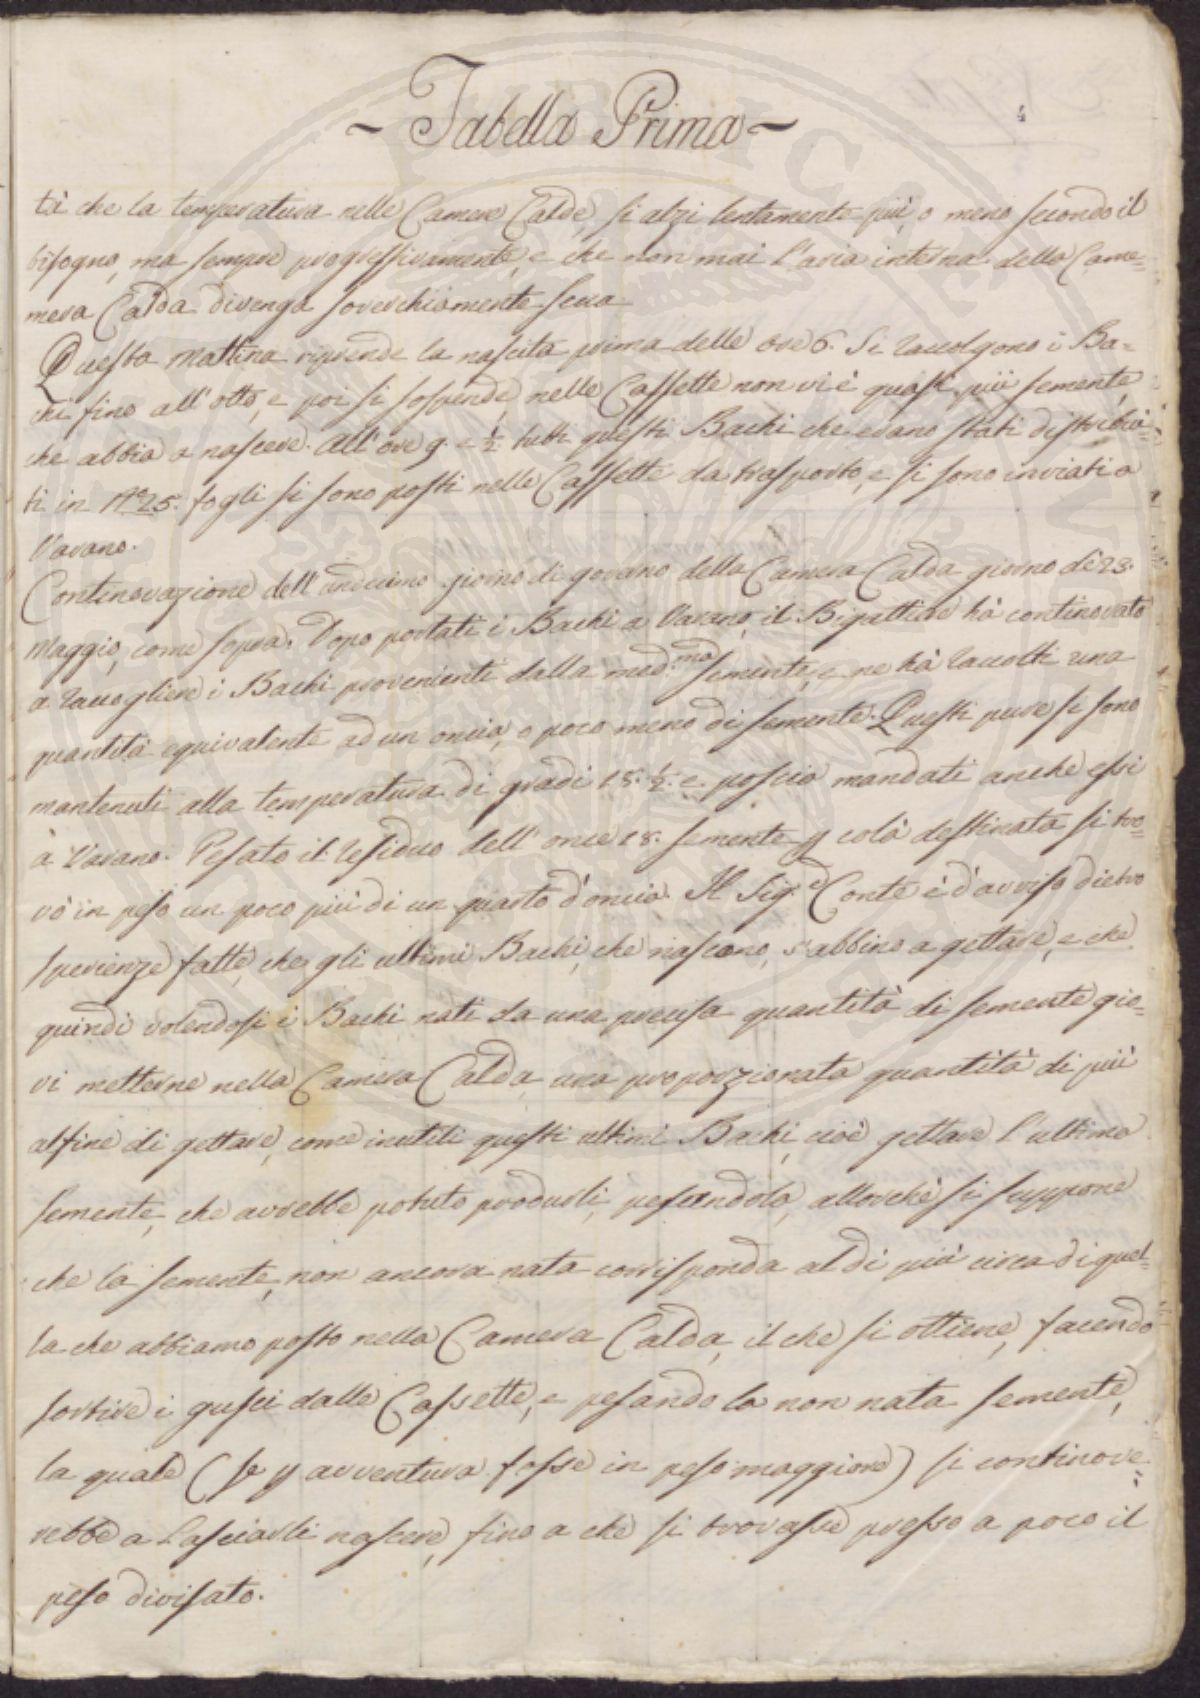 ~ Tabella Prima ~
tà che la temperatura nelle Camere Calde, si alzi lentamente più, o meno secondo il
bisogno, ma sempre progressivamente, e che non mai l'aria interna della Came=
mera Calda divenga soverchiamente secca
Questa mattina riprende la nascita prima delle ore 6. Si raccolgono i Ba=
chi fino all'otto, e poi si sospende, nelle Cassette non vi è quasi più semente,
che abbia a nascere. All'ore 9. e ½ tutti questi Bachi che erano stati distribui=
ti in N.o 25. fogli si sono posti nelle Cassette da trasporto, e si sono inviati a
Varano.
Continovazione dell'undecimo giorno di governo della Camera Calda giorno dì 23.
Maggio, come sopra. Dopo portati i Bachi a Varano, il Bigattiere hà continovato
a raccogliere i Bachi provenienti dalla med.ma semente, e ne hà raccolti una
quantità equivalente ad un oncia, o poco meno di semente. Questi pure si sono
mantenuti alla temperatura di gradi 18. ½. e poscia mandati anche essi
à Varano. Pesato il residuo dell'once 18. semente p colà destinata si tro=
vò in peso un poco più di un quarto d'oncia. Il Sig.e Conte è d'avviso dietro
sperienze fatte, che gli ultimi Bachi, che nascono, s'abbino a gettare, e che
quindi volendosi i Bachi nati da una precisa quantità di semente gio=
vi metterne nella Camera Calda una proporzionata quantità di più
alfine di gettare, come inutili questi ultimi Bachi, cioè gettare l'ultima
semente, che avrebbe potuto produrli, pesandola, allorchè si suppone
che la semente, non ancora nata corrisponda al di più circa di quel=
la che abbiamo posto nella Camera Calda, il che si ottiene, facendo
sortire i gusci dalle Cassette, e pesando la non nata semente,
la quale (se p avventura fosse in peso maggiore) si continove=
rebbe a lasciarli nascere, fino a che si trovasse presso a poco il
peso divisato.